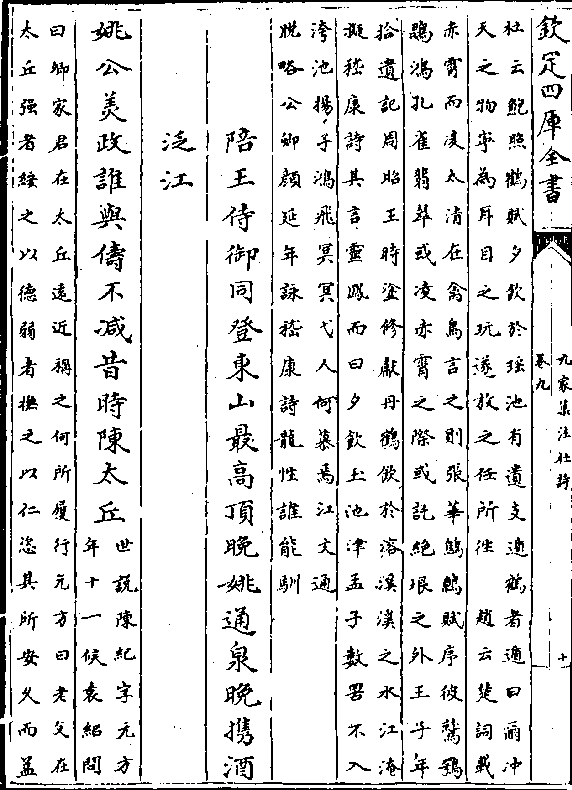 欽定四庫全書
九家集注杜詩
卷九
十
杜云鮑照鶴賦夕飲於瑤池有遺支遁鶴者遁曰爾冲
天之物寧為耳目之玩遂放之任所往 趙云楚詞載
赤霄而凌太清在禽鳥言之則張華鷦鷯賦序彼鷲鶚
鵾鴻孔雀翡翠或凌赤霄之際或託絕垠之外王子年
拾遺記周昭王時塗修獻丹鶴飲於溶溪溪之水江淹
擬嵇康詩其言靈鳳而曰夕飲玉池津孟子數罟不入
洿池揚子鴻飛冥冥弋人何慕焉江文通
脱略公卿顔延年詠嵇康詩龍性誰能馴
陪王侍御同登東山最高頂晚姚通泉晚携酒
泛江
姚公美政誰與儔不减昔時陳太丘
世説陳紀字元方
年十一候袁紹問
曰卿家君在太丘遠近稱之何所履行元方曰老父在
太丘强者綏之以德弱者撫之以仁恣其所安久而益